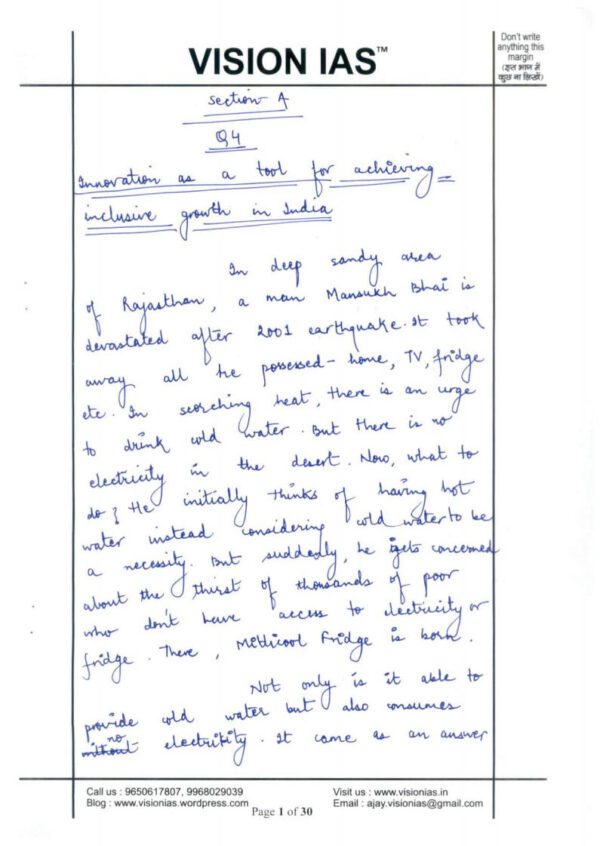 VISION IAS™
Don't write
anything this
margin
(इस भाग में
कुछ ना लिखें)
Section A
Q4
Innovation as a tool for achieving
inclusive growth in India
In deep sandy area
of Rajasthan, a man Mansukh Bhai is
devastated after 2001 earthquake. It took
away all he possessed - home, TV, fridge
etc. In scorching heat, there is an urge
to drink cold water. But there is no
electricity in the desert. Now, what to
do? He initially thinks of having hot
water instead considering cold water to be
a necessity. But suddenly, he gets concerned
about the thirst of thousands of poor
who don't have access to electricity or
fridge. There, Mitticool Fridge is born.
Not only is it able to
provide cold water but also consumes
without no electricity. It came as an answer
Call us : 9650617807, 9968029039
Visit us : www.visionias.in
Blog : www.visionias.wordpress.com
Page 1 of 30
Email : ajay.visionias@gmail.com